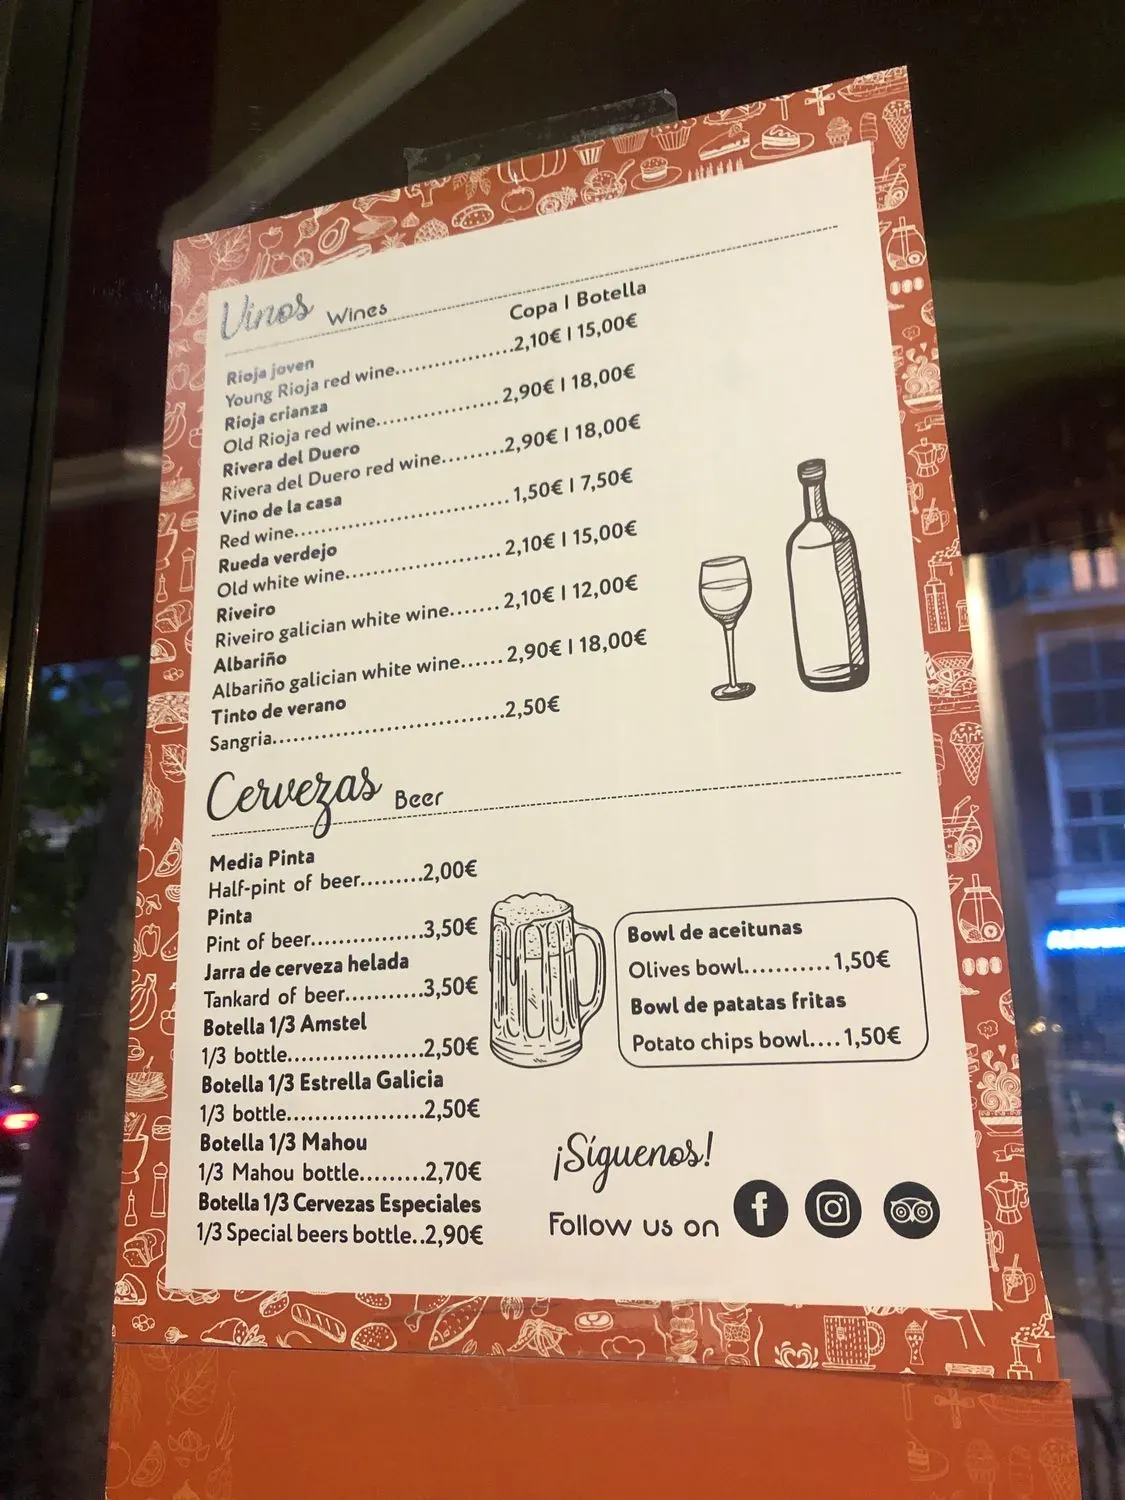 Vinos Wines
Copa | Botella
Rioja joven
Young Rioja red wine...............2,10€ | 15,00€
Rioja crianza
Old Rioja red wine................2,90€ | 18,00€
Rivera del Duero
Rivera del Duero red wine.........2,90€ | 18,00€
Vino de la casa
Red wine............................1,50€ | 7,50€
Rueda verdejo
Old white wine....................2,10€ | 15,00€
Riveiro
Riveiro galician white wine.......2,10€ | 12,00€
Albariño
Albariño galician white wine......2,90€ | 18,00€
Tinto de verano
Sangria..............................2,50€
Cervezas Beer
Media Pinta
Half-pint of beer.........2,00€
Pinta
Pint of beer................3,50€
Jarra de cerveza helada
Tankard of beer...........3,50€
Botella 1/3 Amstel
1/3 bottle...................2,50€
Botella 1/3 Estrella Galicia
1/3 bottle...................2,50€
Botella 1/3 Mahou
1/3 Mahou bottle.........2,70€
Botella 1/3 Cervezas Especiales
1/3 Special beers bottle..2,90€
Bowl de aceitunas
Olives bowl...........1,50€
Bowl de patatas fritas
Potato chips bowl....1,50€
¡Síguenos!
Follow us on